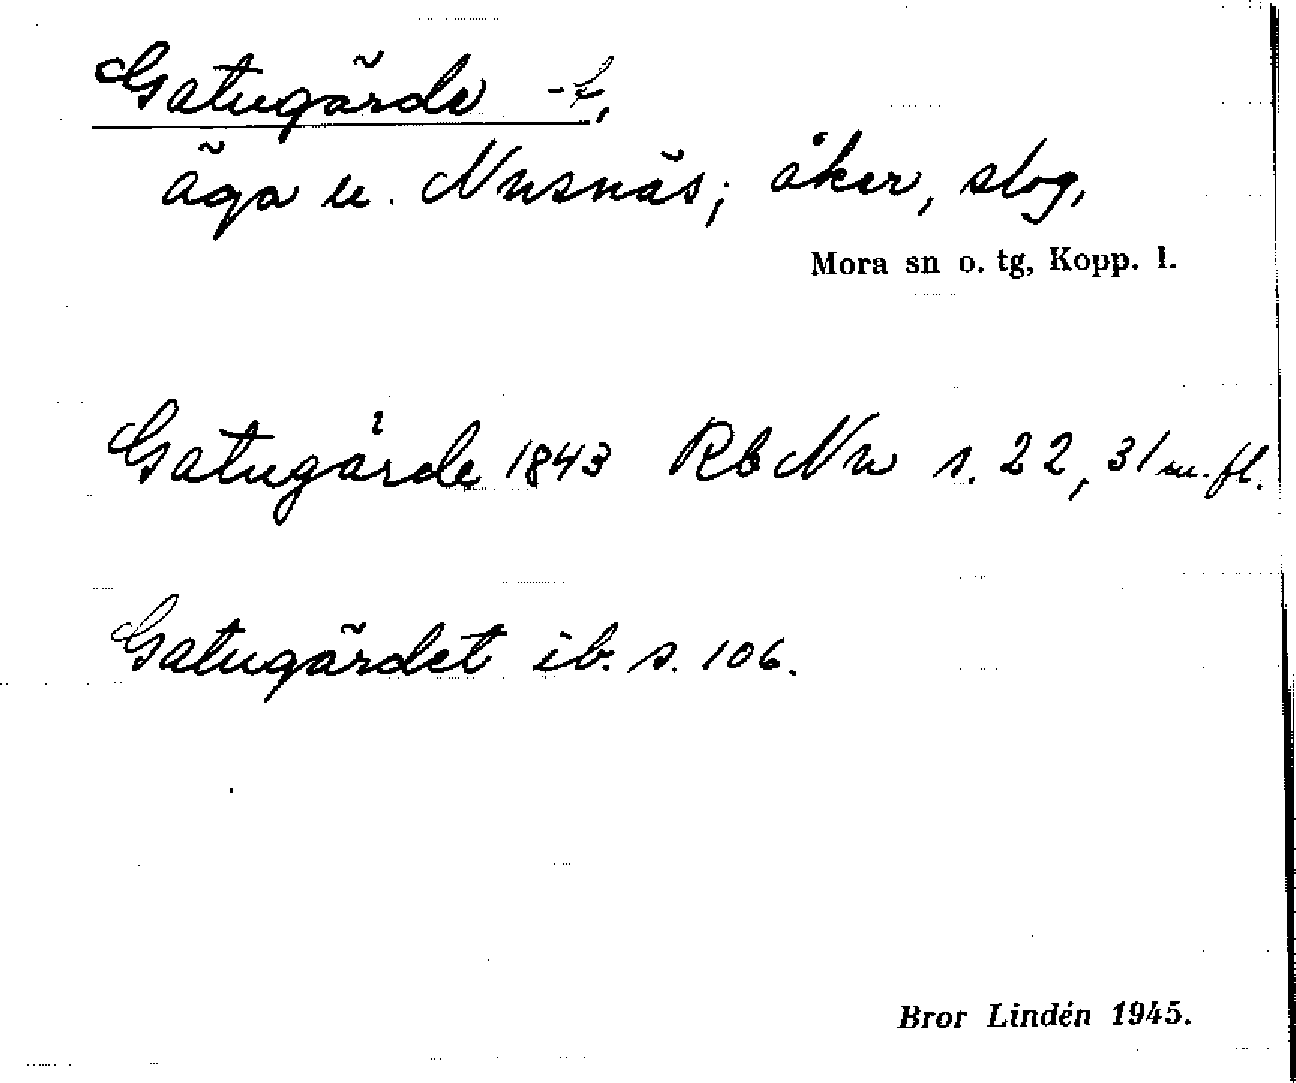 Gatugärde -t,
äga u. Nusnäs; åker, slog,
Mora sn o. tg, Kopp. l.
Gatugärde 1843 Rb Nu s. 22, 31 m. fl.
Gatugärdet ib. s. 106.
Bror Lindén 1945.